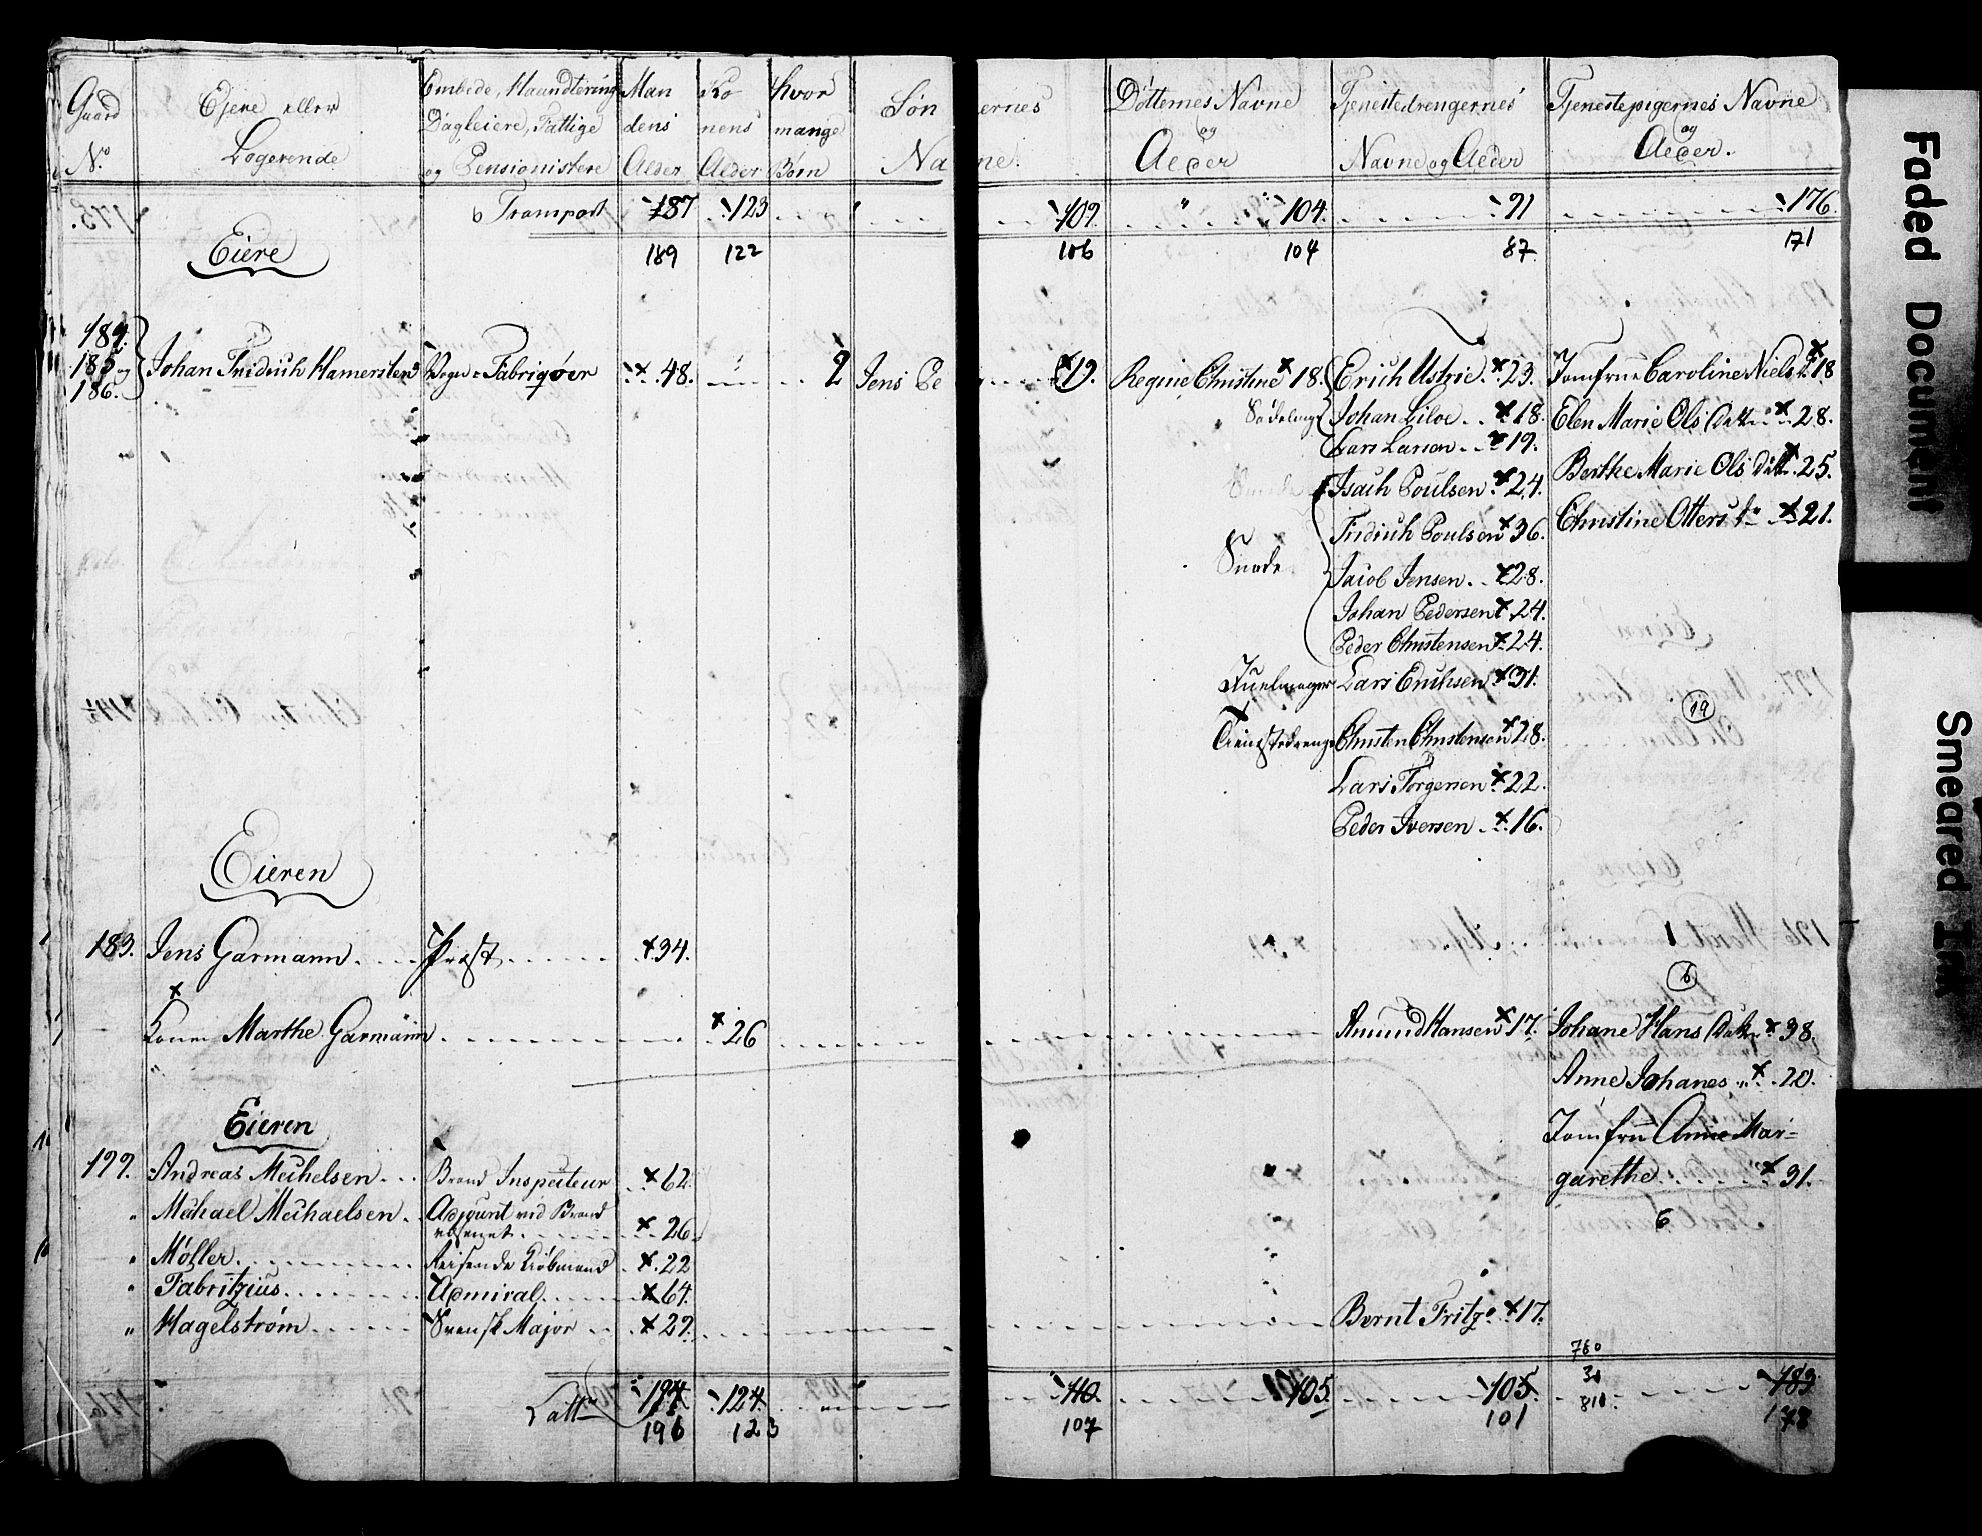 Gaard No. | Ejere eller Logerende | Embede, Haandtering, Dagleiere, Fattige og Pensionistere | Mandens Alder | Konens Alder | hvor mange Børn | Søn ernes Na ne. | Døtternes Navne og Alder | Tjenestedrengernes Navne og Alder | Tjenestepigernes Navne og Alder.
Transport 187 123 109. " 104. 91 176.
Eiere 189 122 106 104 87. 171
184. 185 og 186. Johan Fridrich Hamersten Vogn-Fabriqøer 48. 2 Jens Pe 19. Regine Christine 18. Erich Ustvie 23. Jomfrue Caroline Niels 18
Sadelmager Johan Liloe 18. Elen Marie Ols Datt. 28.
Lars Larsen 19. Berthe Marie Ols Datt. 25.
Isach Poulsen 24. Christine Otters do 21.
Fridrich Poulsen 36.
Smede
Jacob Jensen 28.
Johan Pedersen 24.
Peder Christensen 24.
Hiulmager Lars Erichsen 31.
19
Tienestedrenge Christen Christensen 28.
Lars Torgersen 22.
Peder Iversen 16.
Eieren
183. Jens Garmann Præst 34. 1
6
Konen Marthe Garmann 26 Amund Hansen 17. Johane Hans Datter 38.
Anne Johanes 20.
Eieren
Jomfru Anne Mar=
garethe 31.
199. Andreas Michelsen Brand Inspecteur 62.
Michael Michaelsen Adjount vid Brand væsenet 26. 6
Møller Reisende Kiøbmand 22
Fabritzius Admiral 64.
Hagelstrøm Svensk Major 29. Bernt Fritz 17.
780
30
810
Latt. 194 124. 110. 105. 105. 183
196 123 107 101 178
Faded Document
Smeared Ink